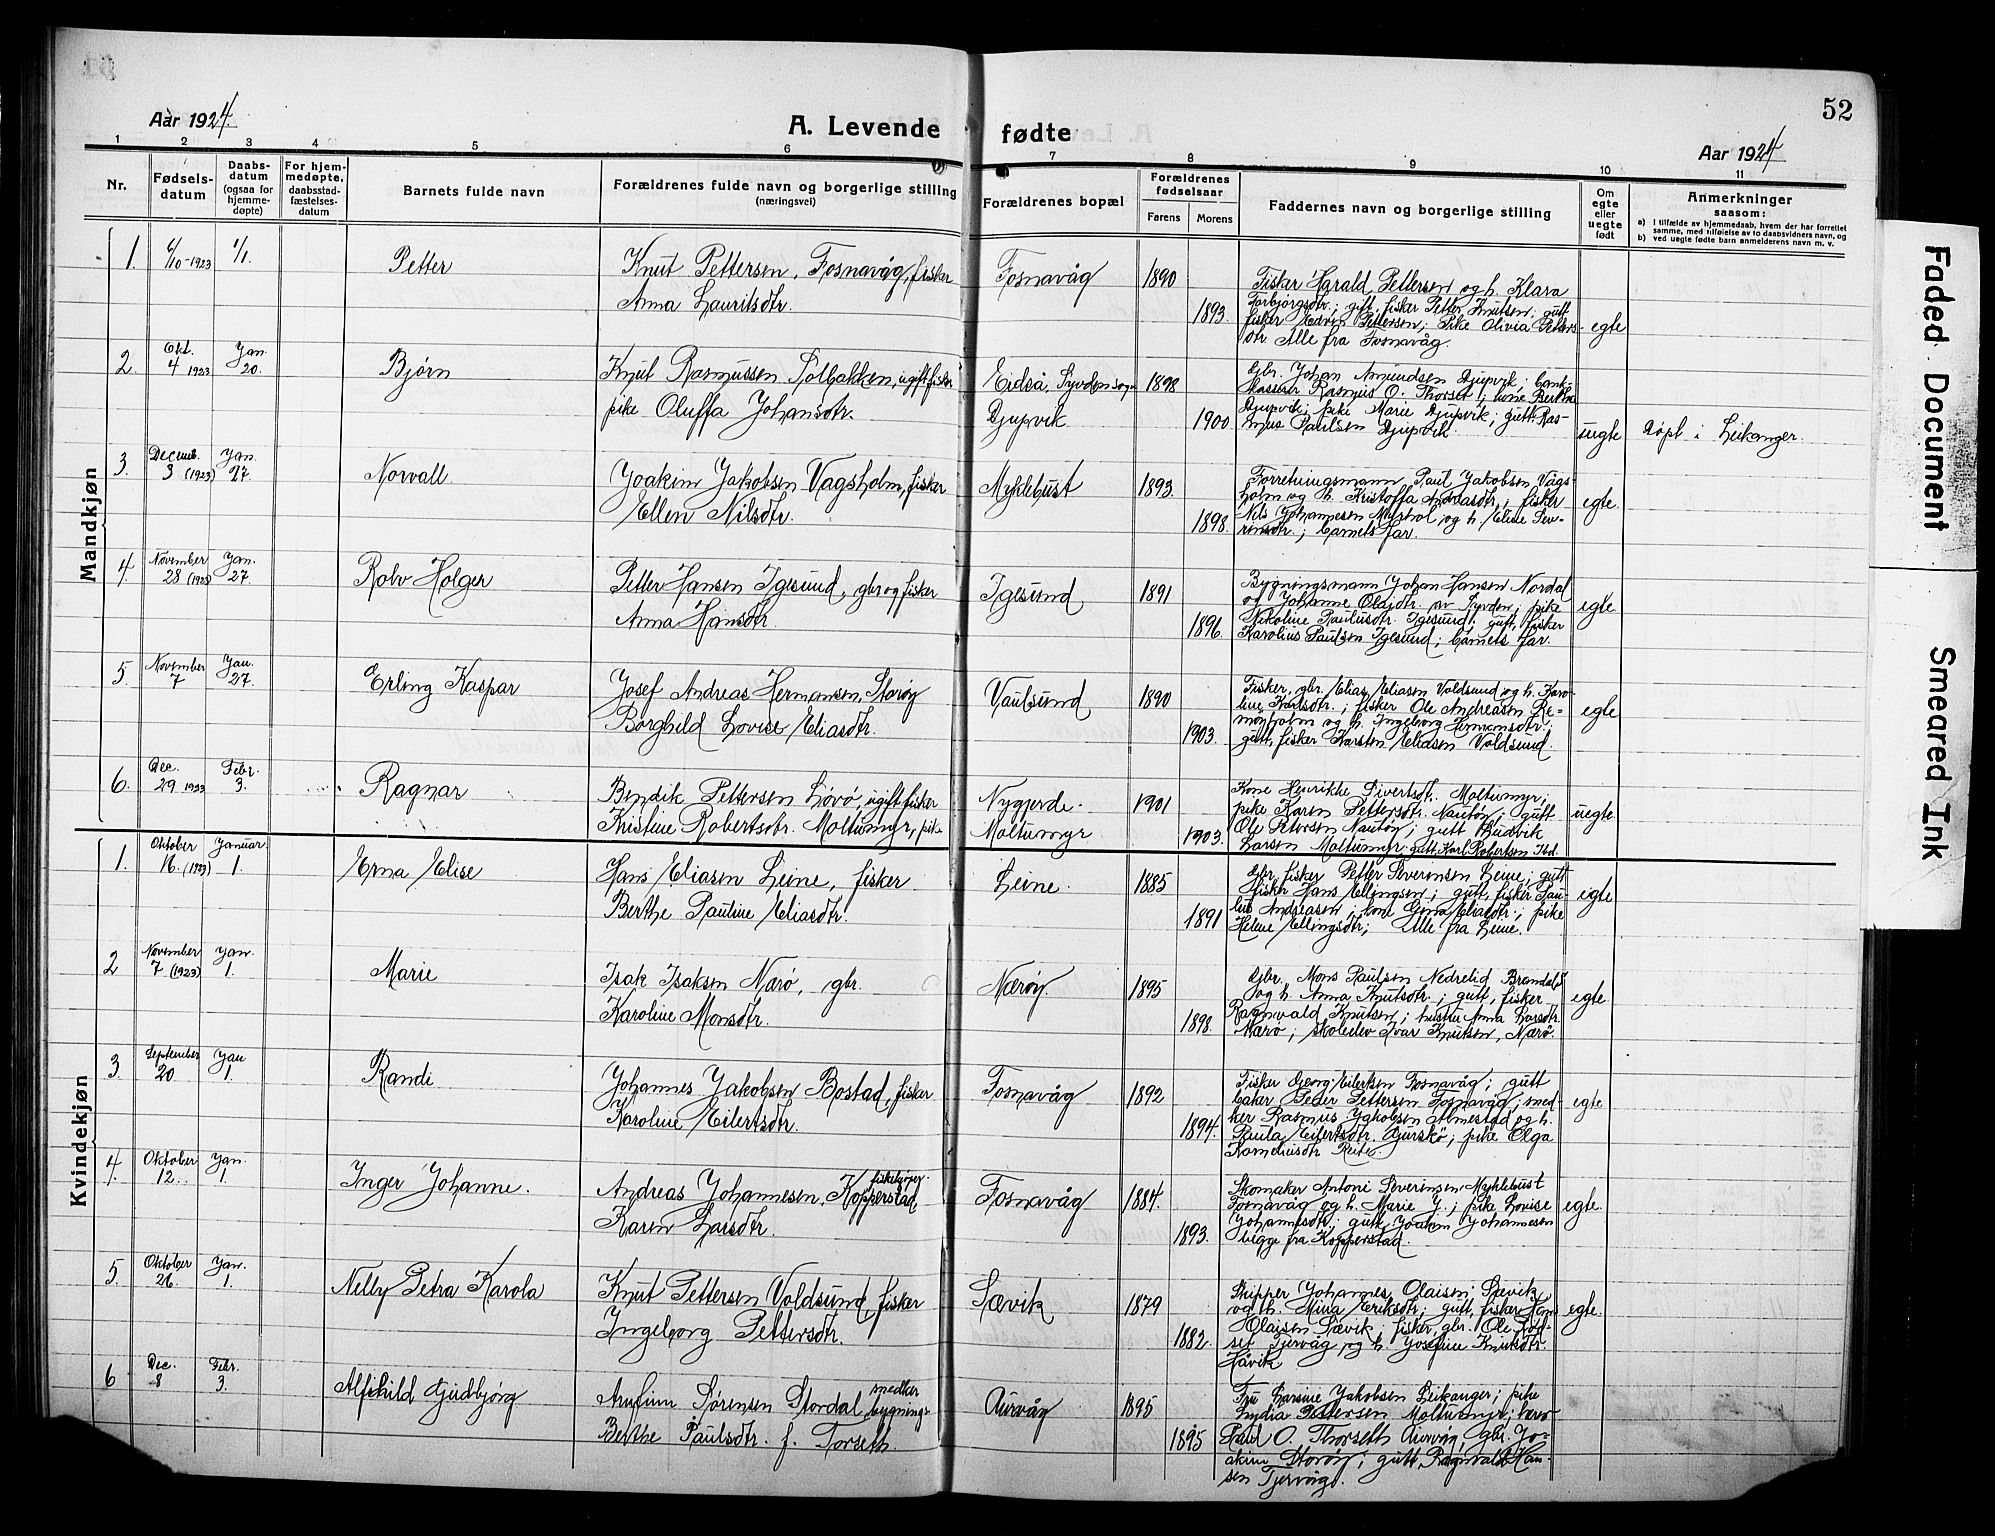 52
Aar 1924.
A. Levende fødte
Aar 1924
1 2 3 4 5 6 7 8 9 10 11
Nr.
Fødsels-
datum
Daabs-
datum
(ogsaa for
hjemme-
døpte)
For hjem-
medøpte,
daabsstad-
fæstelses-
datum
Barnets fulde navn
Forældrenes fulde navn og borgerlige stilling
(næringsvei)
Forældrenes bopæl
Forældrenes
fødselsaar
Farens
Morens
Faddernes navn og borgerlige stilling
Om
egte
eller
uegte
født
Anmerkninger
saasom:
a) I tilfælde av hjemmedaab, hvem der har forrettet
samme, med tilføielse av to daabsvidners navn, og
b) ved uegte fødte barn anmelderens navn m. v.
Mandkjøn
1. 6/10-1923 1/1. Petter
Knut Pettersen, Fosnavåg, fisker
Anna Lauritsdtr.
Fosnavåg 1890
1893.
Fisker Harald Pettersen og h. Klara
Torbjørgsdtr; gift fisker Petter Knutsen; gutt
fisker Edvin Pettersen; Pike Olivia Petters-
dtr. Alle fra Fosnavåg.
egte
2. Okt. 4 1923 Jan. 20. Bjørn
Knut Rasmussen Solbakken, ugift fisker
pike Oluffa Johansdtr.
Eidså, Syvden sogn 1898
Djupvik 1900
Gbr. Johan Amundsen Djupvik; bank-
kasserer Rasmus O. Thorset; kone Berthe
Djupvik; pike Marie Djupvik; gutt Ras-
mus Paulsen Djupvik.
uegte
Døpt i Leikanger.
3. Decemb. 3 (1923) Jan. 27. Norvall
Joakim Jakobsen Vagsholm, fisker
Ellen Nilsdtr.
Myklebust 1893.
1898.
Forretningsmann Paul Jakobsen Vågs-
holm og h. Kristoffa Andreasdtr; fisker
Nils Johannesen og h. Eline Sev-
rinsdtr; barnets far.
egte
4. November 28 (1923) Jan. 27. Rolv Holger
Petter Hansen Igesund, gbr og fisker
Anna Hansdtr.
Igesund 1891
1896.
Bygningsmann Johan Hansen Nordal
og Johanne Olasdtr. av Syvden; pike
Nikoline Paulusdtr. Igesund; gutt, fisker
Karolius Paulsen Igesund; barnets far.
egte
5. November 7 Jan. 27. Erling Kaspar
Josef Andreas Hermansen, Storøy
Borghild Lovise Eliasdtr.
Vaulsund 1890
1903.
Fisker, gbr. Elias Eliasen Voldsund og h. Karo-
line Karlsdtr; fisker Ole Andreasen Re-
møyholm og h. Ingeborg Hermansdtr.
gutt, fisker Karsten Eliasen Voldsund.
egte
6. Dec. 29 1923 Febr. 3. Ragnar
Bendik Pettersen Løvø, ugift fisker
Kristine Robertsdtr. Moltumyr, pike
Nygjerde. 1901
Moltumyr 1903.
Kone Henrikke Sivertsdtr. Moltumyr;
pike Karen Pettersdtr. Nautøy; gutt
Ole Petersen Nautøy; gutt Ludvik
Larsen Moltumyr. gutt Karl Robertsen Ibd.
uegte
Kvindekjøn
1. Oktober 16. (1923) Januar. 1. Erna Elise
Hans Eliasen Leine, fisker
Berthe Pauline Eliasdtr.
Leine. 1885
1891
Gbr. fisker Petter Severinsen Leine; gutt
fisker Hans Ellingsen; gutt, fisker Pau-
lus Andreasen; kone Gina Eliasdtr; pike
Helene Ellingsdtr; Alle fra Leine.
egte
2 November 7 (1923) Jan. 1. Marie
Isak Isaksen Nærø, gbr.
Karoline Monsdtr.
Nærøy 1895
1898.
Gbr. Mons Paulsen Nedrelid Brandals
og h. Anna Knutsdtr; gutt, fisker
Ragnvald Knutsen; hustru Anna Larsdtr.
Nærø; skoleelev Ivar Knutsen, Nærø.
egte
3. September 20 Jan 1. Randi
Johannes Jakobsen Bostad, fisker
Karoline Eilertsdtr.
Fosnavåg 1892
1894.
Fisker Georg Eilertsen Fosnavåg; gutt
baker Peder Pettersen Fosnavåg; sned-
ker Rasmus Jakobsen Almestad og h.
Paula Eilertsdtr. Gurskø; pike Olga
Korneliusdtr Reite.
egte
4. Oktober 12. Jan. 1. Inger Johanne.
Andreas Johannesen, Kopperstad
Karen Larsdtr.
Fosnavåg 1884.
1893.
Skomaker Antoni Severinsen Myklebust
Fosnavåg og h. Marie J.; pike Lovise
Johannesdtr; gutt Joakim Johannesen
begge fra Kopperstad.
egte.
5. Oktober 26 Jan. 1. Nelly Petra Karola
Knut Pettersen Voldsund, fisker
Ingeborg Pettersdtr.
Sævik 1879
1882.
Skipper Johannes Olaisen Sævik
og h. Mina Eriksdtr; gutt, fisker Hans
Olaisen Sævik; fisker, gbr. Ole
Tjervåg og h. Josefine Knutsdtr.
Håvik
egte.
6 Dec. 8 Febr. 3. Alfhild Gudbjørg
Arnfinn Sørensen Stordal, snedker bygnings-
Berthe Paulsdtr. f. Torseth.
Aurvåg 1895
1895
Fru Larsine Jakobsen Leikanger; pike
Lydia Pettersen Moltumyr; lærer
Paul O. Thorseth Aurvåg, gbr. Jo-
akim Storøy; gutt, Ragnvald Han-
sen Tjervåg.
Faded Document Smeared Ink